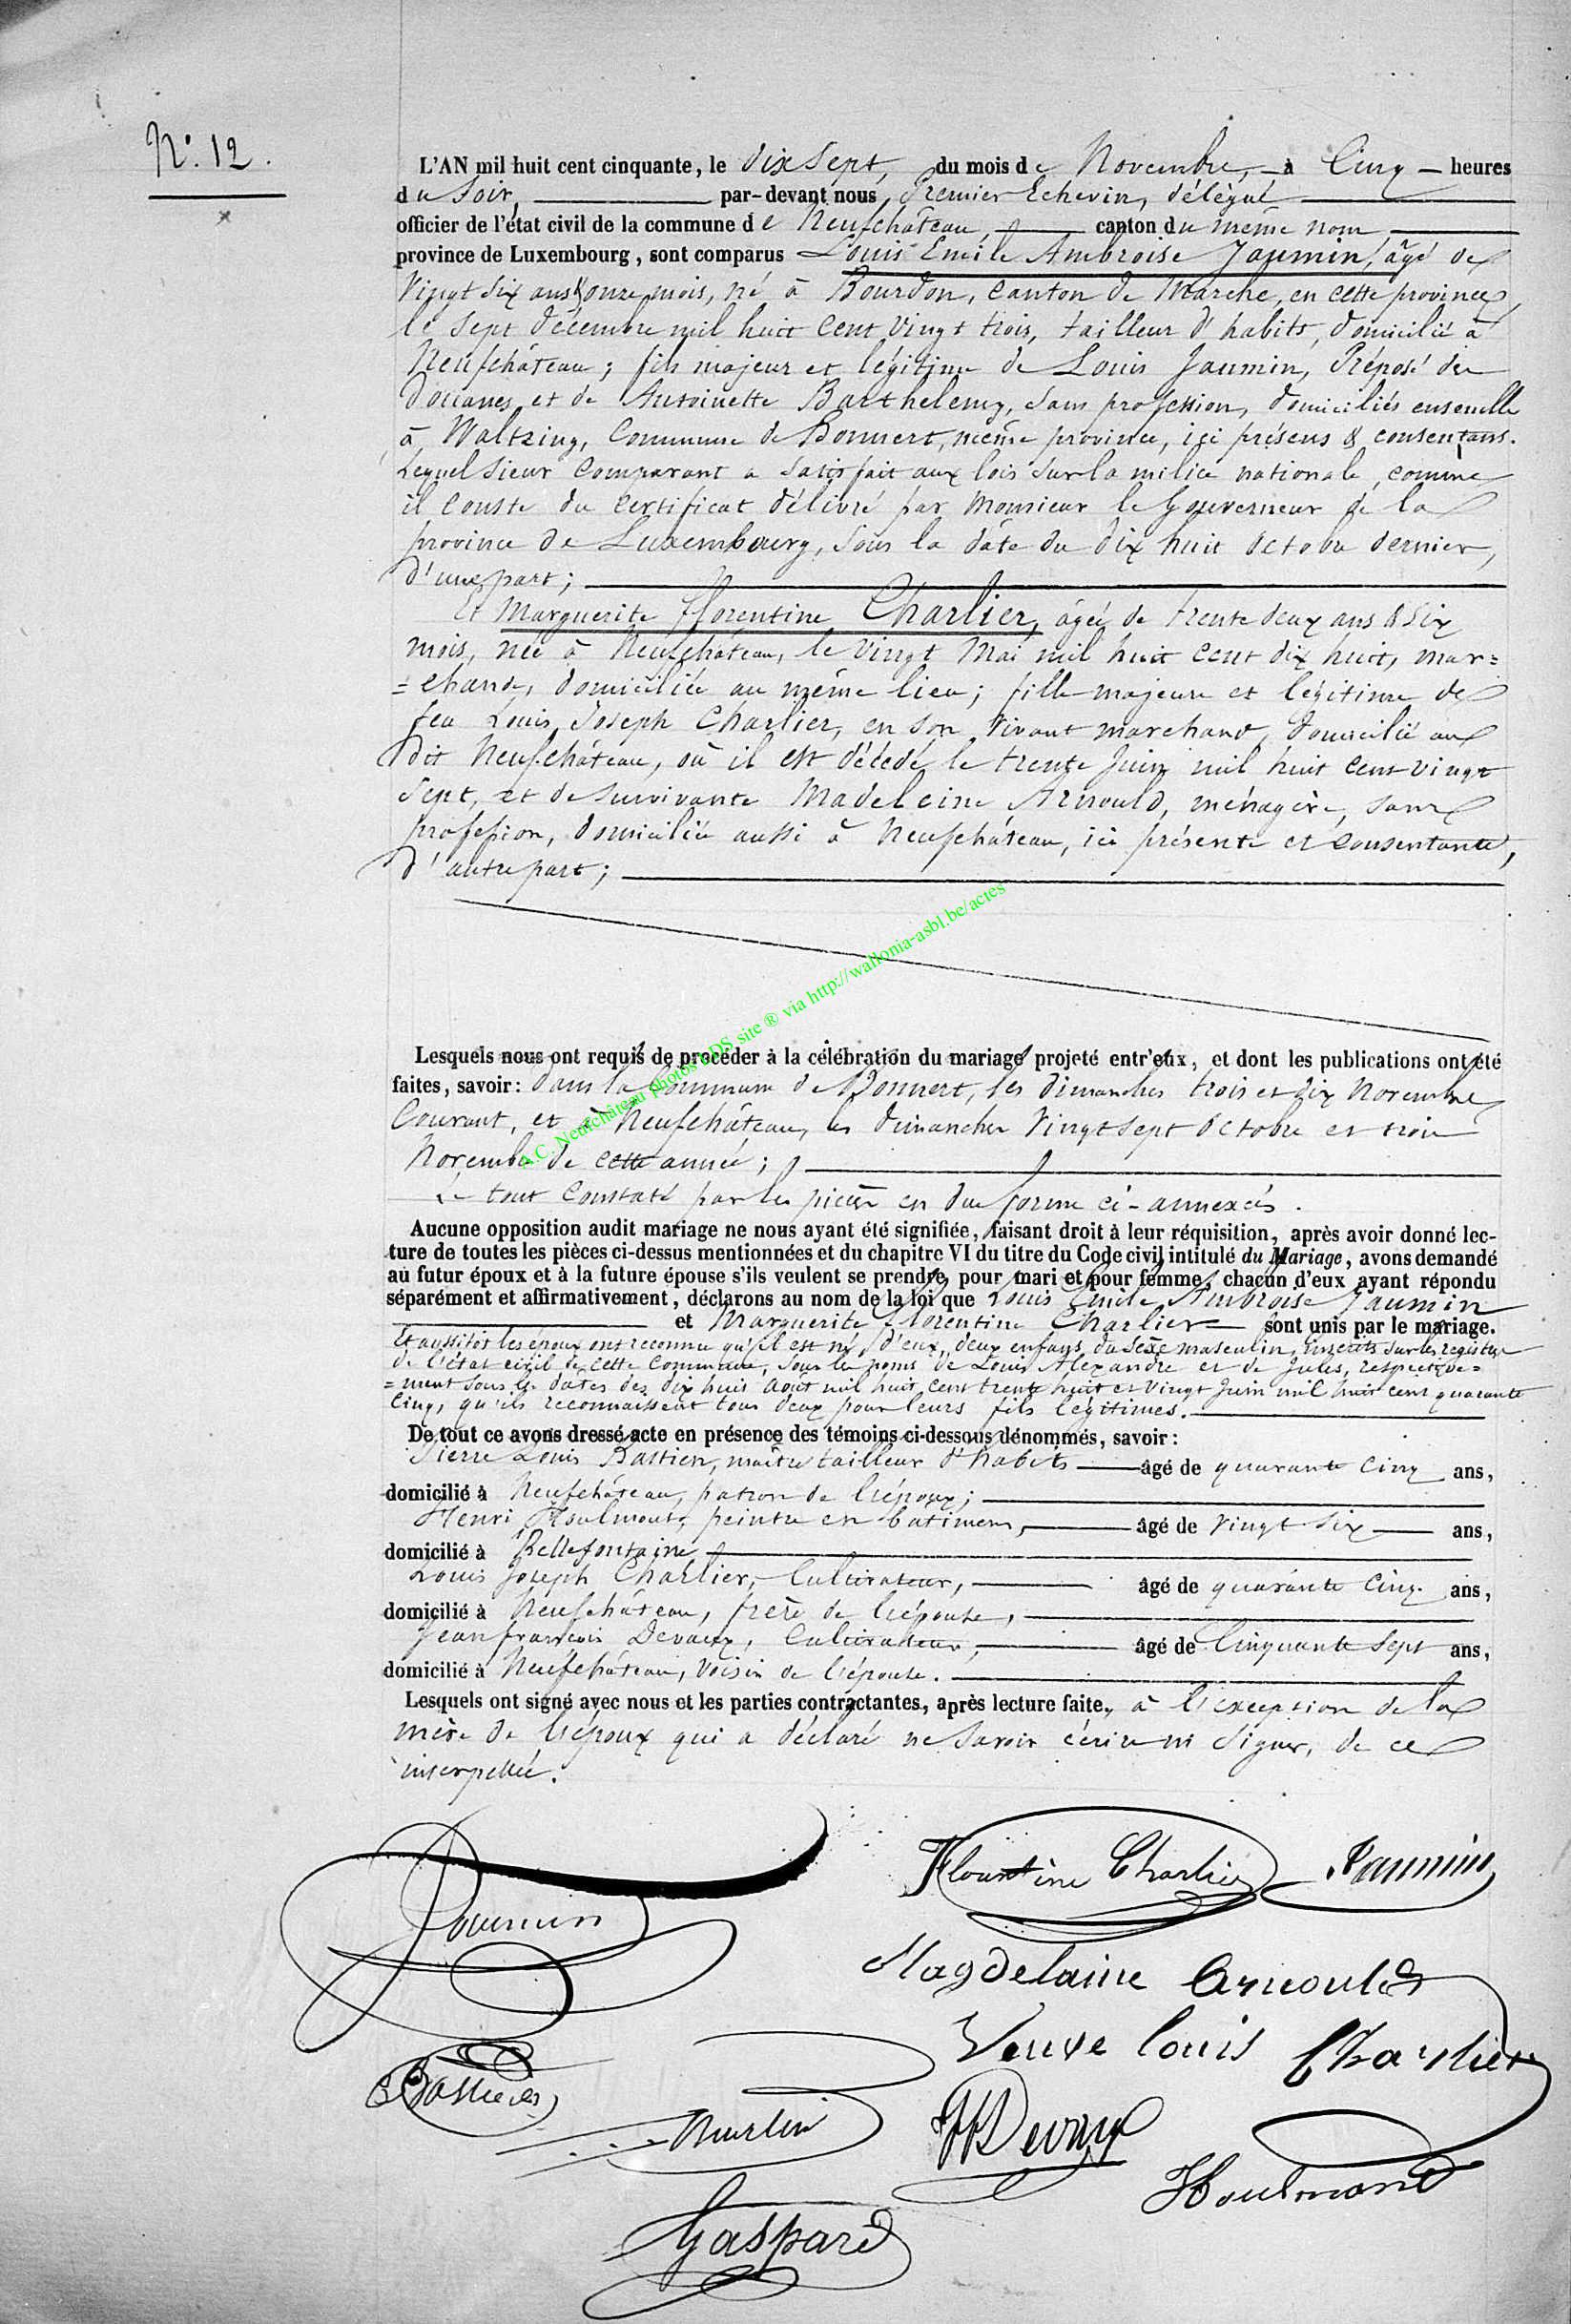 N°. 12.
L'AN mil huit cent cinquante, le dix Sept, du mois de Novembre, à Cinq heures
du Soir, par-devant nous, Premier Echevin, délégué
officier de l'état civil de la commune de Neufchâteau, canton du même nom,
province de Luxembourg, sont comparus Louis Emile Ambroise Jaumin, âgé de
Vingt Six ans & onze mois, né à Bourdon, Canton de Marche, en cette province,
le Sept décembre mil huit Cent Vingt trois, tailleur d'habits, domicilié à
Neufchâteau; fils majeur et légitime de Louis Jaumin, Préposé des
Douanes, et de Antoinette Barthelemy, Sans profession, domiciliés ensemble
à Waltzing, Commune de Bonnert, même province, ici présens & consentans.
Lequel Sieur Comparant a Satisfait aux lois Sur la milice nationale, comme
il Conste du Certificat délivré par Monsieur le Gouverneur de la
province de Luxembourg, Sous la date du dix huit Octobre dernier,
d'une part;
Et Marguerite Florentine Charlier, âgée de trente deux ans & Six
mois, née à Neufchâteau, le Vingt Mai mil huit Cent dix huit, mar=
=chande, domiciliée au même lieu; fille majeure et légitime de
feu Louis Joseph Charlier, en Son Vivant marchand, domicilié au
dit Neufchâteau, où il est décédé le trente Juin mil huit Cent vingt
Sept, et de Survivante Madeleine Arnould, ménagère, Sans
profession, domiciliée aussi à Neufchâteau, ici présente et Consentante,
d'autre part;
A.C. Neufchâteau photos LDS site ® via http://wallonia-asbl.be/actes
Lesquels nous ont requis de procéder à la célébration du mariage projeté entr'eux, et dont les publications ont été
faites, savoir: dans la Commune de Bonnert, les dimanches trois et dix Novembre
Courant, et à Neufchâteau, les dimanches Vingt Sept Octobre et trois
Novembre de cette année;
Le tout Constaté par les pièces en due forme ci-annexées.
Aucune opposition audit mariage ne nous ayant été signifiée, faisant droit à leur réquisition, après avoir donné lec-
ture de toutes les pièces ci-dessus mentionnées et du chapitre VI du titre du Code civil intitulé du Mariage, avons demandé
au futur époux et à la future épouse s'ils veulent se prendre pour mari et pour femme, chacun d'eux ayant répondu
séparément et affirmativement, déclarons au nom de la loi que Louis Emile Ambroise Jaumin
et Marguerite Florentine Charlier sont unis par le mariage.
Et aussitôt les époux ont reconnu qu'il est né d'eux, deux enfans du Sèxe masculin, inscrits Sur les registres
de l'état civil de cette Commune, Sous les noms de Louis Alexandre et de Jules, respective=
=ment Sous les dates des dix huit Août mil huit Cent trente huit et Vingt Juin mil huit Cent quarante
Cinq, qu'ils reconnaissent tous deux pour leurs fils légitimes.
De tout ce avons dressé acte en présence des témoins ci-dessous dénommés, savoir:
Pierre Louis Bastien, maître tailleur d'habits âgé de quarante Cinq ans,
domicilié à Neufchâteau, patron de l'époux;
Henri Houlmont, peintre en bâtimens, âgé de Vingt Six ans,
domicilié à Bellefontaine
Louis Joseph Charlier, Cultivateur, âgé de quarante Cinq ans,
domicilié à Neufchâteau, frère de l'épouse,
Jean françois Devaux, Cultivateur, âgé de Cinquante Sept ans,
domicilié à Neufchâteau, Voisin de l'épouse.
Lesquels ont signé avec nous et les parties contractantes, après lecture faite, à l'exception de la
mère de l'époux qui a déclaré ne Savoir écrire ni Signer, de ce
interpellée.
Florentine Charlier Jaumin
Jaumin
Magdelaine Arnould
Veuve louis Charlier
Bastien
JF Devaux
Houlmont
Gaspard